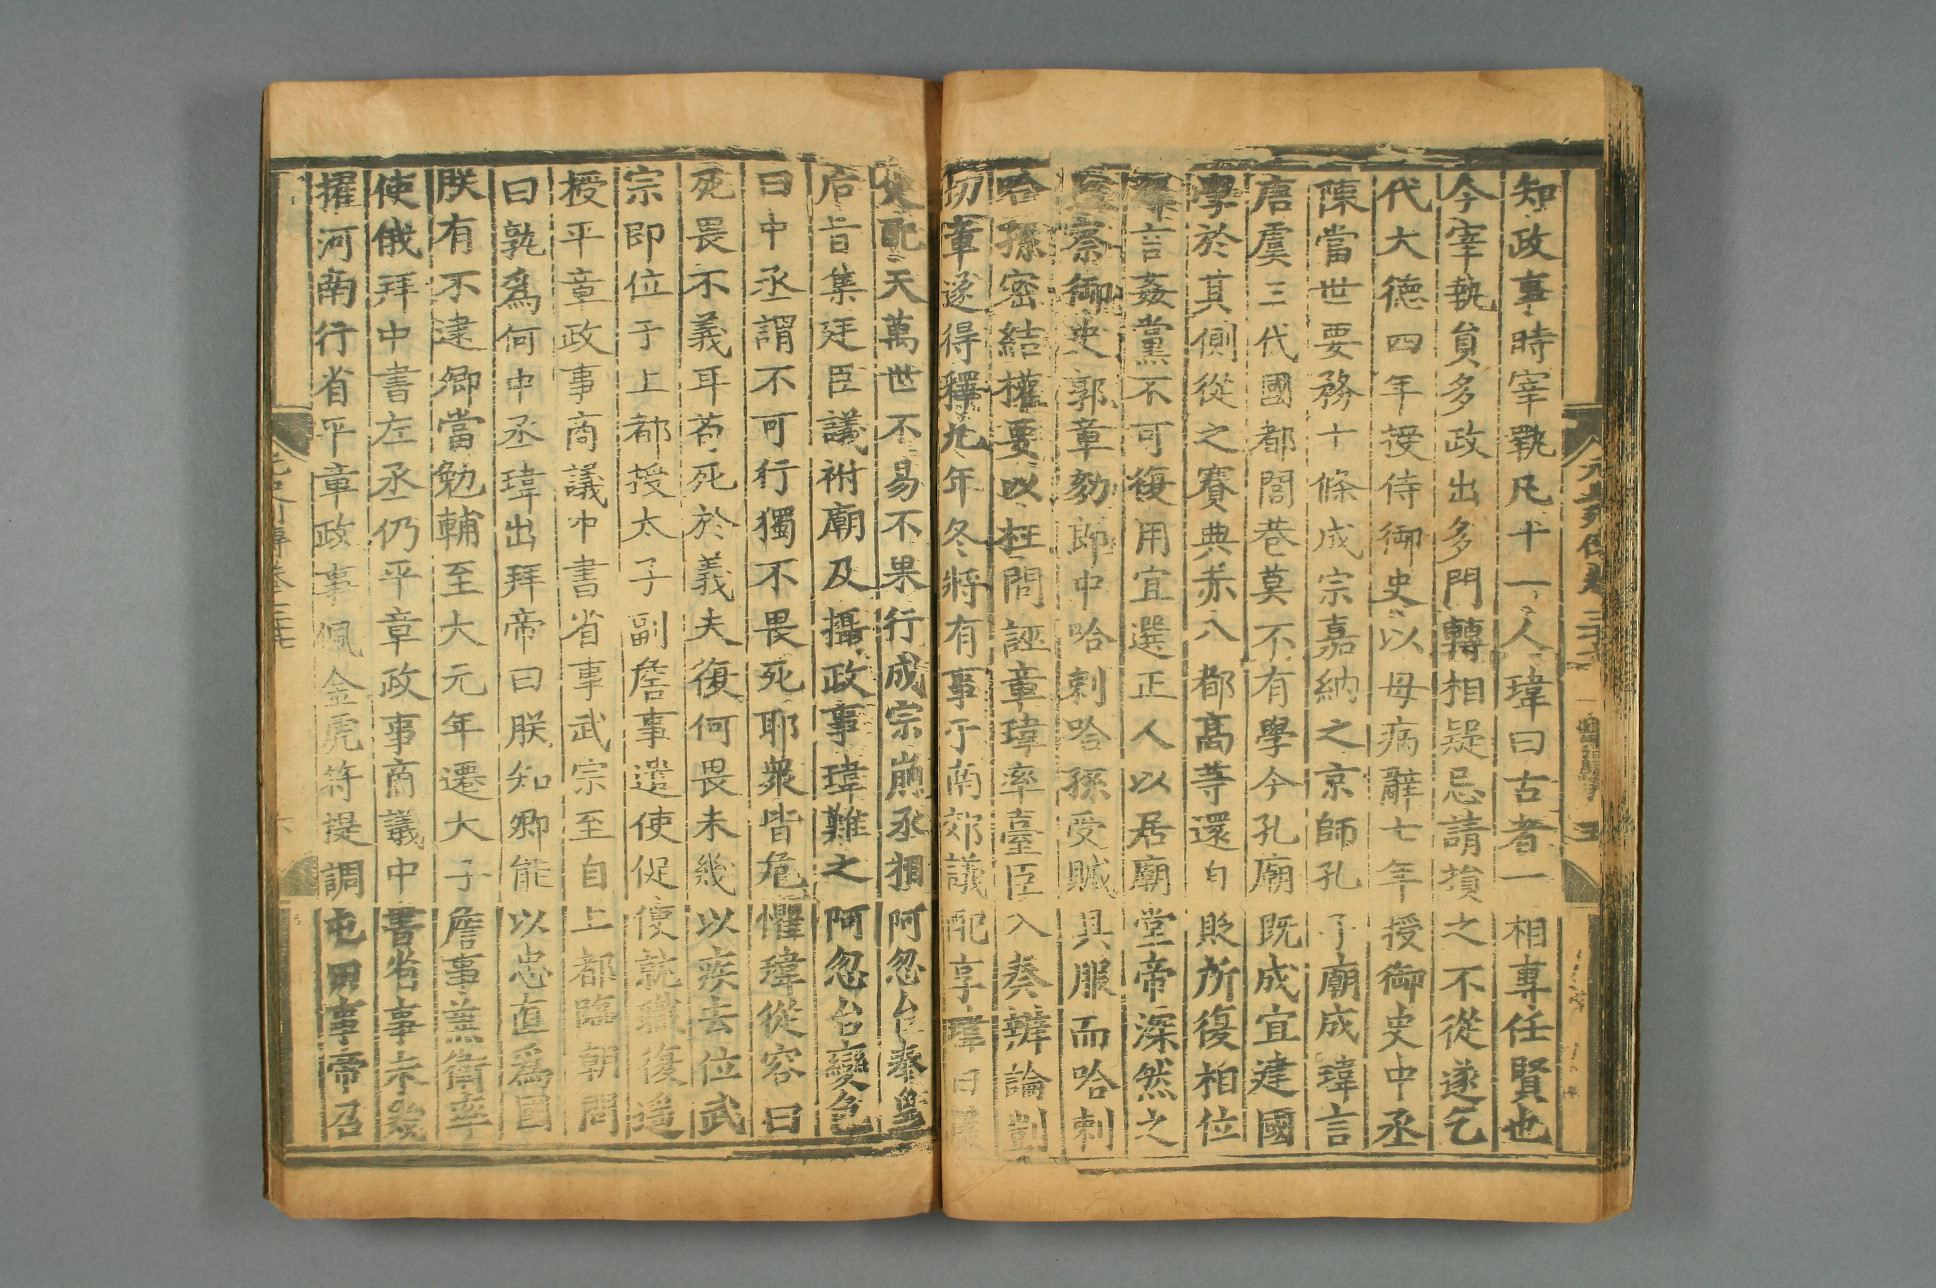 知政事時宰執凡十一人瑋曰古者一相專任賢也
今宰執員多政出多門轉相疑忌請損之不從遂乞
代大德四年授侍御史以母病辭七年授御史中丞
陳當世要務十條成宗嘉納之京師孔子廟成瑋言
唐虞三代國都閭巷莫不有學今孔廟既成宜建國
學於其側從之賽典赤八都高等還自貶所復相位
言姦黨不可復用宜選正人以居廟堂帝深然之
察御史郭章劾郎中哈剌哈孫受贓具服而哈剌
哈孫密結權要以枉問誣章瑋率臺臣入奏辨論剴
切章遂得釋九年冬將有事于南郊議配享瑋曰
配天萬世不易不果行成宗崩丞相阿忽台奉皇
后旨集廷臣議祔廟及攝政事瑋難之阿忽台變色
曰中丞謂不可行獨不畏死耶衆皆危懼瑋從容曰
死畏不義耳苟死於義夫復何畏未幾以疾去位武
宗即位于上都授太子副詹事遣使促使就職復遙
授平章政事商議中書省事武宗至自上都臨朝問
曰孰爲何中丞瑋出拜帝曰朕知卿能以忠直爲國
朕有不逮卿當勉輔至大元年遷太子詹事兼衛率
使俄拜中書左丞仍平章政事商議中書省事未幾
擢河南行省平章政事佩金虎符提調屯田事帝召